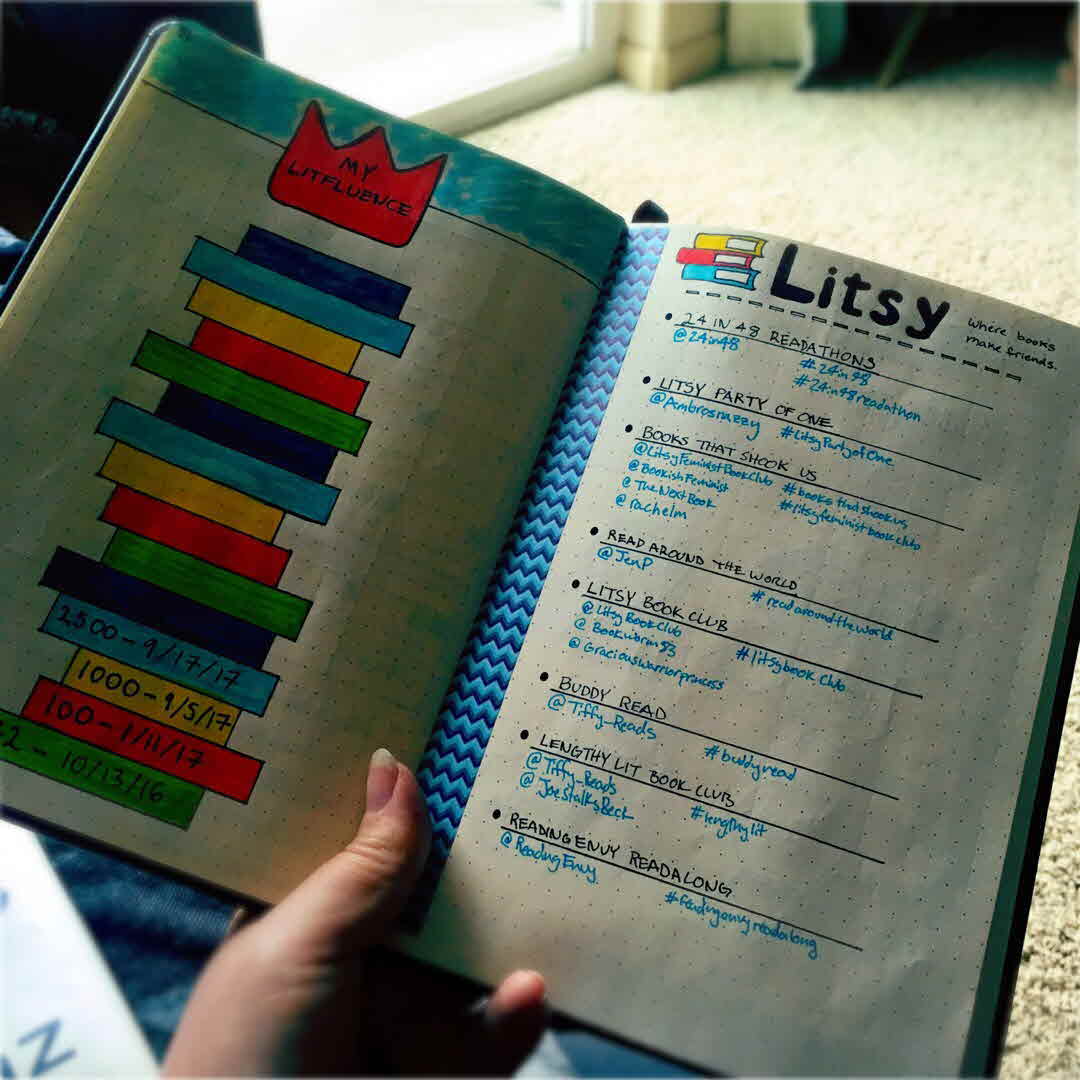 MY
LITFLUENCE
2500 - 9/17/17
1000 - 9/5/17
100 - 1/11/17
2 - 10/13/16
Litsy
Where books
make friends.
24 IN 48 READATHONS
@24in48 #24in48
#24in48readathon
LITSY PARTY OF ONE
@Ambrosnazzy #LitsyPartyofOne
BOOKS THAT SHOOK US
@LitsyFeministBookClub #booksthatshookus
@BookishFeminist #litsyfeministbookclub
@TheNextBook
@rachelm
READ AROUND THE WORLD
@JenP #readaroundtheworld
LITSY BOOK CLUB
@LitsyBookClub #litsybookclub
@Bookworm83
@Graciouswarriorprincess
BUDDY READ
@Tiffy_Reads #buddyread
LENGTHY LIT BOOK CLUB
@Tiffy_Reads #lengthylit
@JoeStalksBeck
READING ENVY READALONG
@ReadingEnvy #readingenvyreadalong